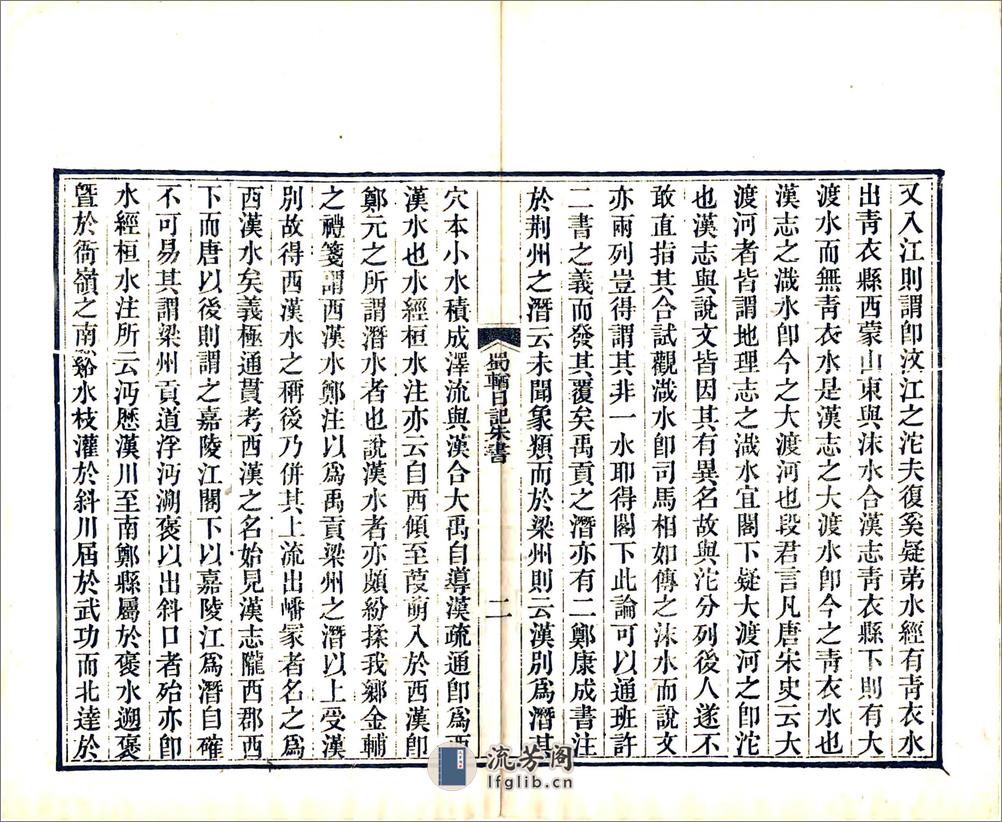 又入江則謂卽汶江之沱夫復奚疑第水經有靑衣水
出靑衣縣西蒙山東與沬水合漢志靑衣縣下則有大
渡水而無靑衣水是漢志之大渡水卽今之靑衣水也
漢志之渽水卽今之大渡河也段君言凡唐宋史云大
渡河者皆謂地理志之渽水宜閣下疑大渡河之卽沱
也漢志與說文皆因其有異名故與沱分列後人遂不
敢直指其合試觀渽水卽司馬相如傳之沬水而說文
亦兩列豈得謂其非一水耶得閣下此論可以通班許
二書之義而發其覆矣禹貢之潛亦有二鄭康成書注
於荆州之潛云未聞象類而於梁州則云漢別爲潛其
蜀輶日記朱書
二
穴本小水積成澤流與漢合大禹自導漢疏通卽爲西
漢水也水經桓水注亦云自西傾至葭萌入於西漢卽
鄭元之所謂潛水者也說漢水者亦頗紛揉我鄉金輔
之禮箋謂西漢水鄭注以爲禹貢梁州之潛以上受漢
別故得西漢水之稱後乃併其上流出嶓冢者名之爲
西漢水矣義極通貫考西漢之名始見漢志隴西郡西
下而唐以後則謂之嘉陵江閣下以嘉陵江爲潛自確
不可易其謂梁州貢道浮沔溯褒以出斜口者殆亦卽
水經桓水注所云沔歷漢川至南鄭縣屬於褒水遡褒
曁於衙嶺之南谿水枝灌於斜川屆於武功而北達於
流芳阁
lfglib.cn